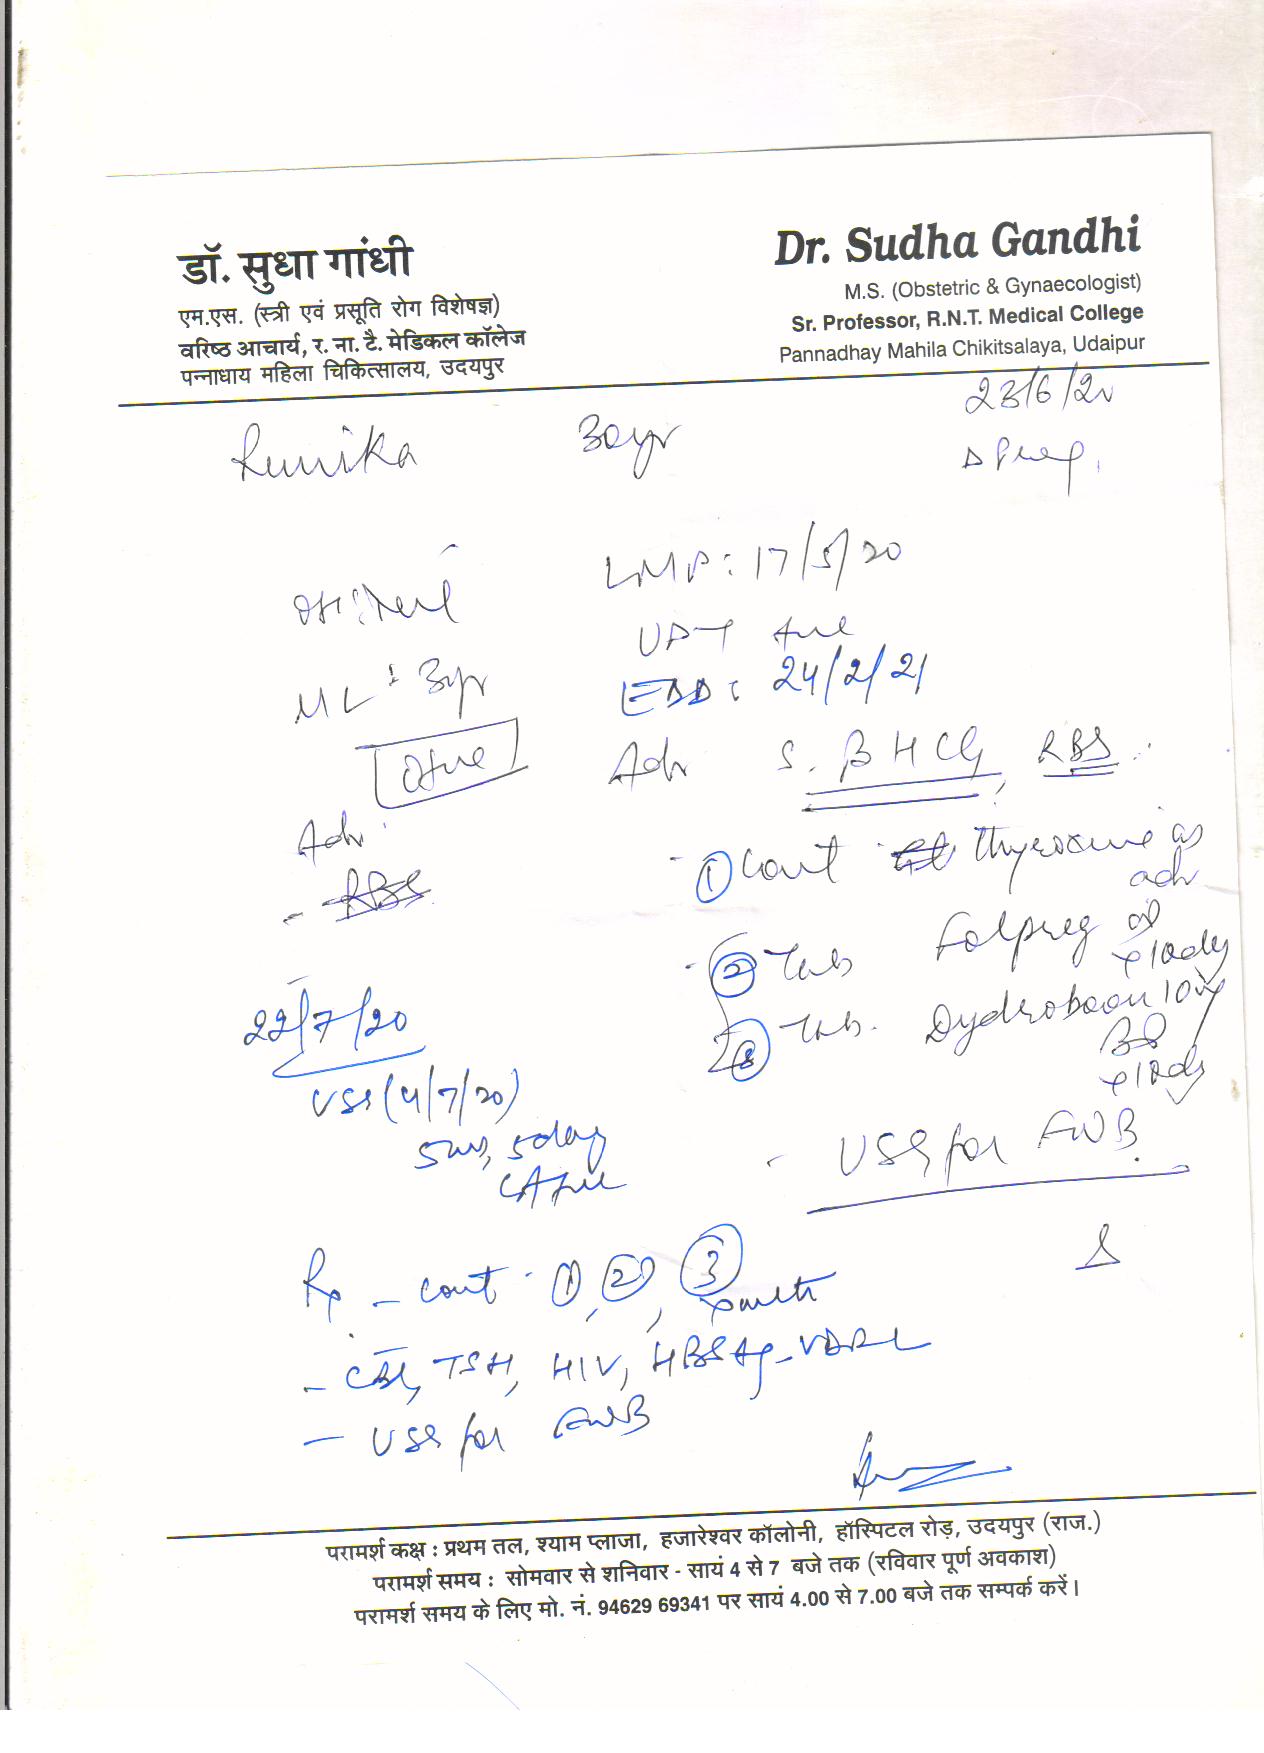 डॉ. सुधा गांधी
एम.एस. (स्त्री एवं प्रसूति रोग विशेषज्ञ)
वरिष्ठ आचार्य, र. ना. टै. मेडिकल कॉलेज
पन्नाधाय महिला चिकित्सालय, उदयपुर
Dr. Sudha Gandhi
M.S. (Obstetric & Gynaecologist)
Sr. Professor, R.N.T. Medical College
Pannadhay Mahila Chikitsalaya, Udaipur
23/6/20
30yr
LMP: 17/5/20
UPT +ve
ML: 3yr
EDD: 24/2/21
Adv S. β HCG, RBS
Adv
- RBS
- ① Cont thyroxine as adv
- ② Tab Folpreg od
③ Tab. Dydroboon 10mg
BD
- USG for FWB
22/7/20
USG (4/7/20)
5w, 5day
CA +ve
Rx - Cont ①, ②, ③
- CBC, TSH, HIV, HBSAg, VDRL
- USG for FWB
परामर्श कक्ष : प्रथम तल, श्याम प्लाजा, हजारेश्वर कॉलोनी, हॉस्पिटल रोड़, उदयपुर (राज.)
परामर्श समय : सोमवार से शनिवार - सायं 4 से 7 बजे तक (रविवार पूर्ण अवकाश)
परामर्श समय के लिए मो. नं. 94629 69341 पर सायं 4.00 से 7.00 बजे तक सम्पर्क करें।